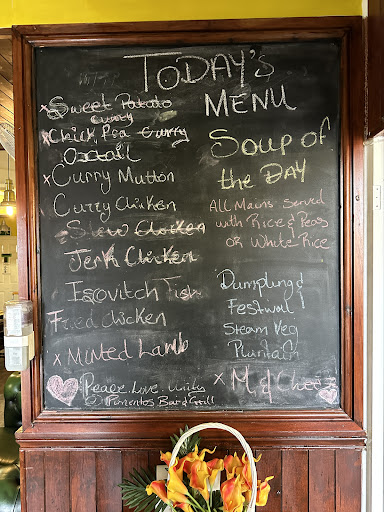 TODAY'S
MENU
x Sweet Potato
Curry
x Chick Pea Curry
Oxtail
x Curry Mutton
Curry Chicken
Stew Chicken
Jerk Chicken
Escovitch Fish
Fried Chicken
x Minted Lamb
Peace. Love. Unity
@ Pimentos Bar & Grill
Soup of
the DAY
All Mains Served
with Rice & Peas
OR White Rice
Dumpling &
Festival
Steam Veg
Plantain
x M & Cheese